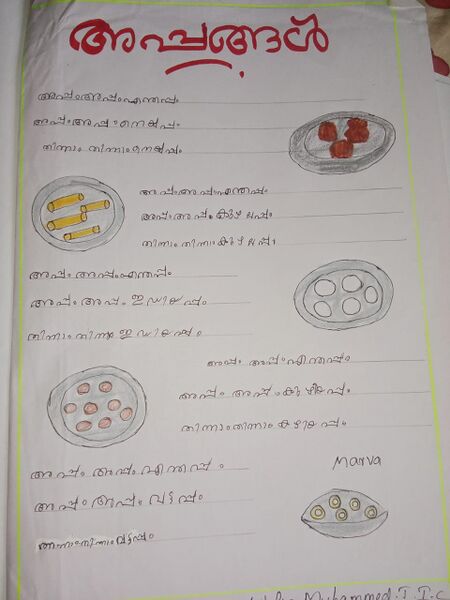 അപ്പങ്ങൾ
അപ്പം അപ്പം എന്തപ്പം
അപ്പം അപ്പം നെയ്യപ്പം
തിന്നാം തിന്നാം നെയ്യപ്പം
അപ്പം അപ്പം എന്തപ്പം
അപ്പം അപ്പം കുഴലപ്പം
തിന്നാം തിന്നാം കുഴലപ്പം
അപ്പം അപ്പം എന്തപ്പം
അപ്പം അപ്പം ഇഡിയപ്പം
തിന്നാം തിന്നാം ഇഡിയപ്പം
അപ്പം അപ്പം എന്തപ്പം
അപ്പം അപ്പം കുഴിയപ്പം
തിന്നാം തിന്നാം കുഴിയപ്പം
അപ്പം അപ്പം എന്തപ്പം
Marva
അപ്പം അപ്പം വട്ടപ്പം
തിന്നാം തിന്നാം വട്ടപ്പം
Muhammed.T.I.C